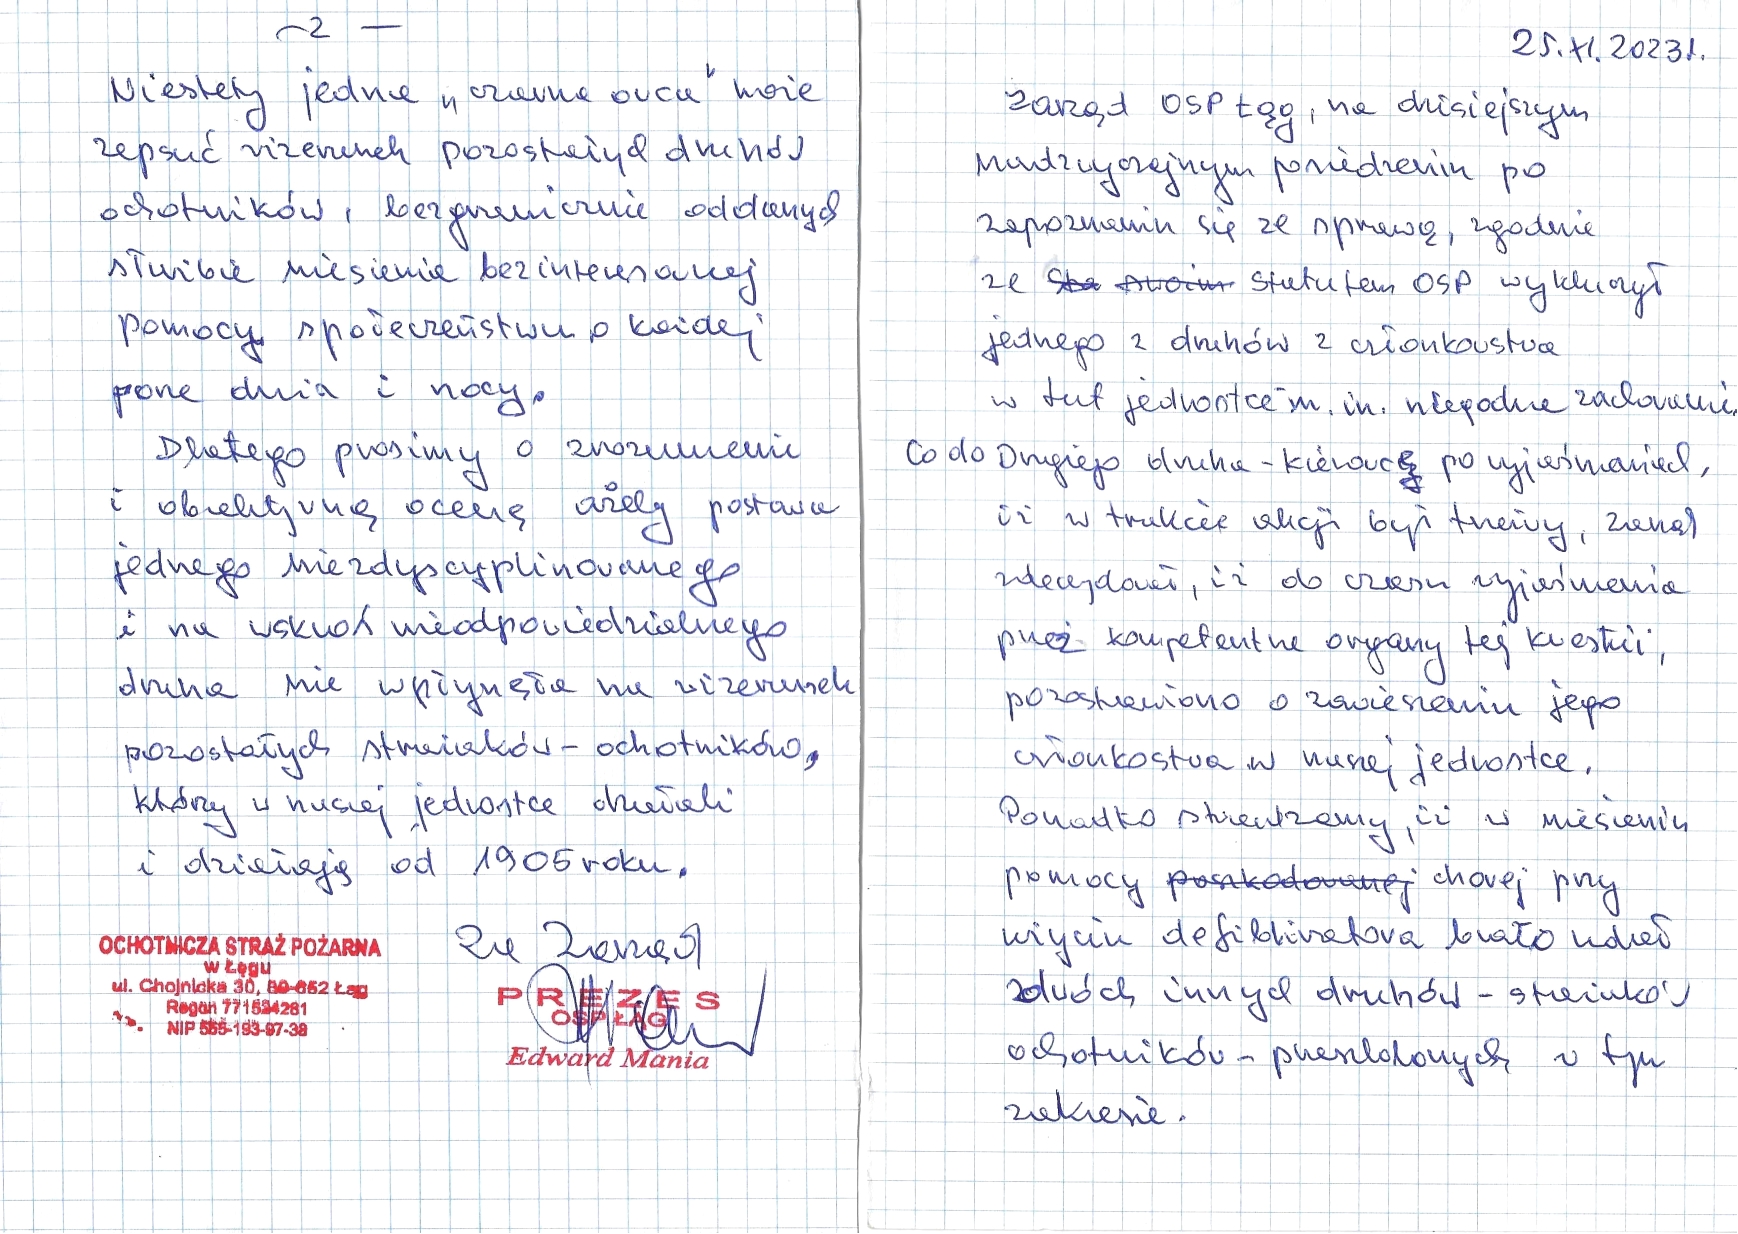 ~2 —
Niestety jedna „czarna owca” może
zepsuć wizerunek pozostałych druhów
ochotników, bezgranicznie oddanych
służbie niesienia bezinteresownej
pomocy społeczeństwu o każdej
porze dnia i nocy.
Dlatego prosimy o zrozumienie
i obiektywną ocenę ażeby postawa
jednego niezdyscyplinowanego
i na wskroś nieodpowiedzialnego
druha nie wpłynęła na wizerunek
pozostałych strażaków - ochotników,
którzy w naszej jednostce działali
i działają od 1905 roku.
Za Zarząd
OCHOTNICZA STRAŻ POŻARNA
w Łęgu
ul. Chojnicka 30, 89-652 Łąg
Regon 771534281
NIP 555-193-97-38
PREZES
OSP ŁĄG
Edward Mania
25.XI.2023r.
Zarząd OSP Łąg, na dzisiejszym
nadzwyczajnym posiedzeniu po
zapoznaniu się ze sprawą, zgodnie
ze Sta swoim Statutem OSP wykluczył
jednego z druhów z członkowstwa
w tut jednostce m. in. niegodne zachowanie.
Co do Drugiego druha - kierowcę po wyjaśnieniach,
iż w trakcie akcji był trzeźwy, zarząd
zdecydował, iż do czasu wyjaśnienia
przez kompetentne organy tej kwestii,
postanowiono o zawieszeniu jego
członkostwa w naszej jednostce.
Ponadto stwierdzamy, iż w niesieniu
pomocy poszkodowanej chorej przy
użyciu defibliratora brało udział
dwóch innych druhów - strażaków
ochotników - przeszkolonych w tym
zakresie.